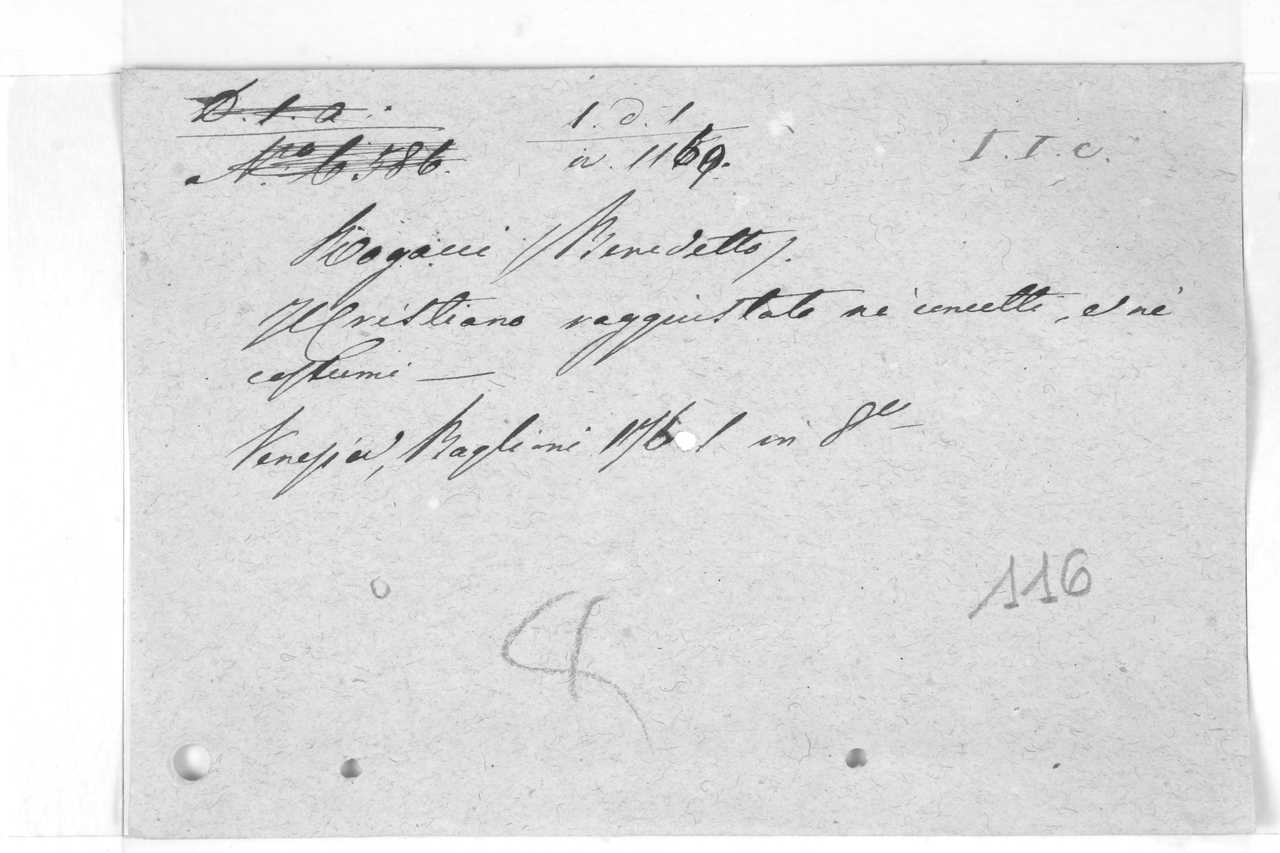 D. 1. a.
1. d. 1
I. I. c.
Nro 6.586.
n. 1169.
Rogacci (Benedetto).
Il Cristiano raggiustato ne' concetti, e ne'
costumi —
Venezia, Baglioni 1761 in 8º
116